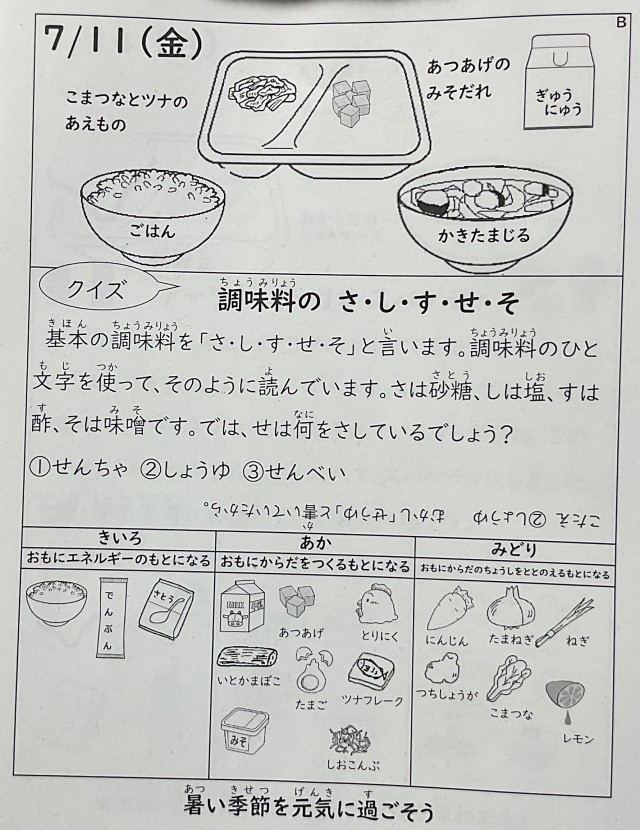 B
7/11(金)
こまつなとツナの
あえもの
あつあげの
みそだれ
ぎゅう
にゅう
ごはん
かきたまじる
クイズ
ちょうみりょう
調味料の さ・し・す・せ・そ
きほん ちょうみりょう い ちょうみりょう
基本の調味料を「さ・し・す・せ・そ」と言います。調味料のひと
もじ つか よ さとう しお
文字を使って、そのように読んでいます。さは砂糖、しは塩、すは
す みそ なに
酢、そは味噌です。では、せは何をさしているでしょう?
①せんちゃ ②しょうゆ ③せんべい
か
こたえ ②しょうゆ むかし「せうゆ」と書いていたから。
きいろ
おもにエネルギーのもとになる
あか
おもにからだをつくるもとになる
みどり
おもにからだのちょうしをととのえるもとになる
でんぷん
さとう
MILK
あつあげ
とりにく
いとかまぼこ
たまご
ツナフレーク
みそ
しおこんぶ
にんじん
たまねぎ
ねぎ
つちしょうが
こまつな
レモン
あつ きせつ げんき す
暑い季節を元気に過ごそう